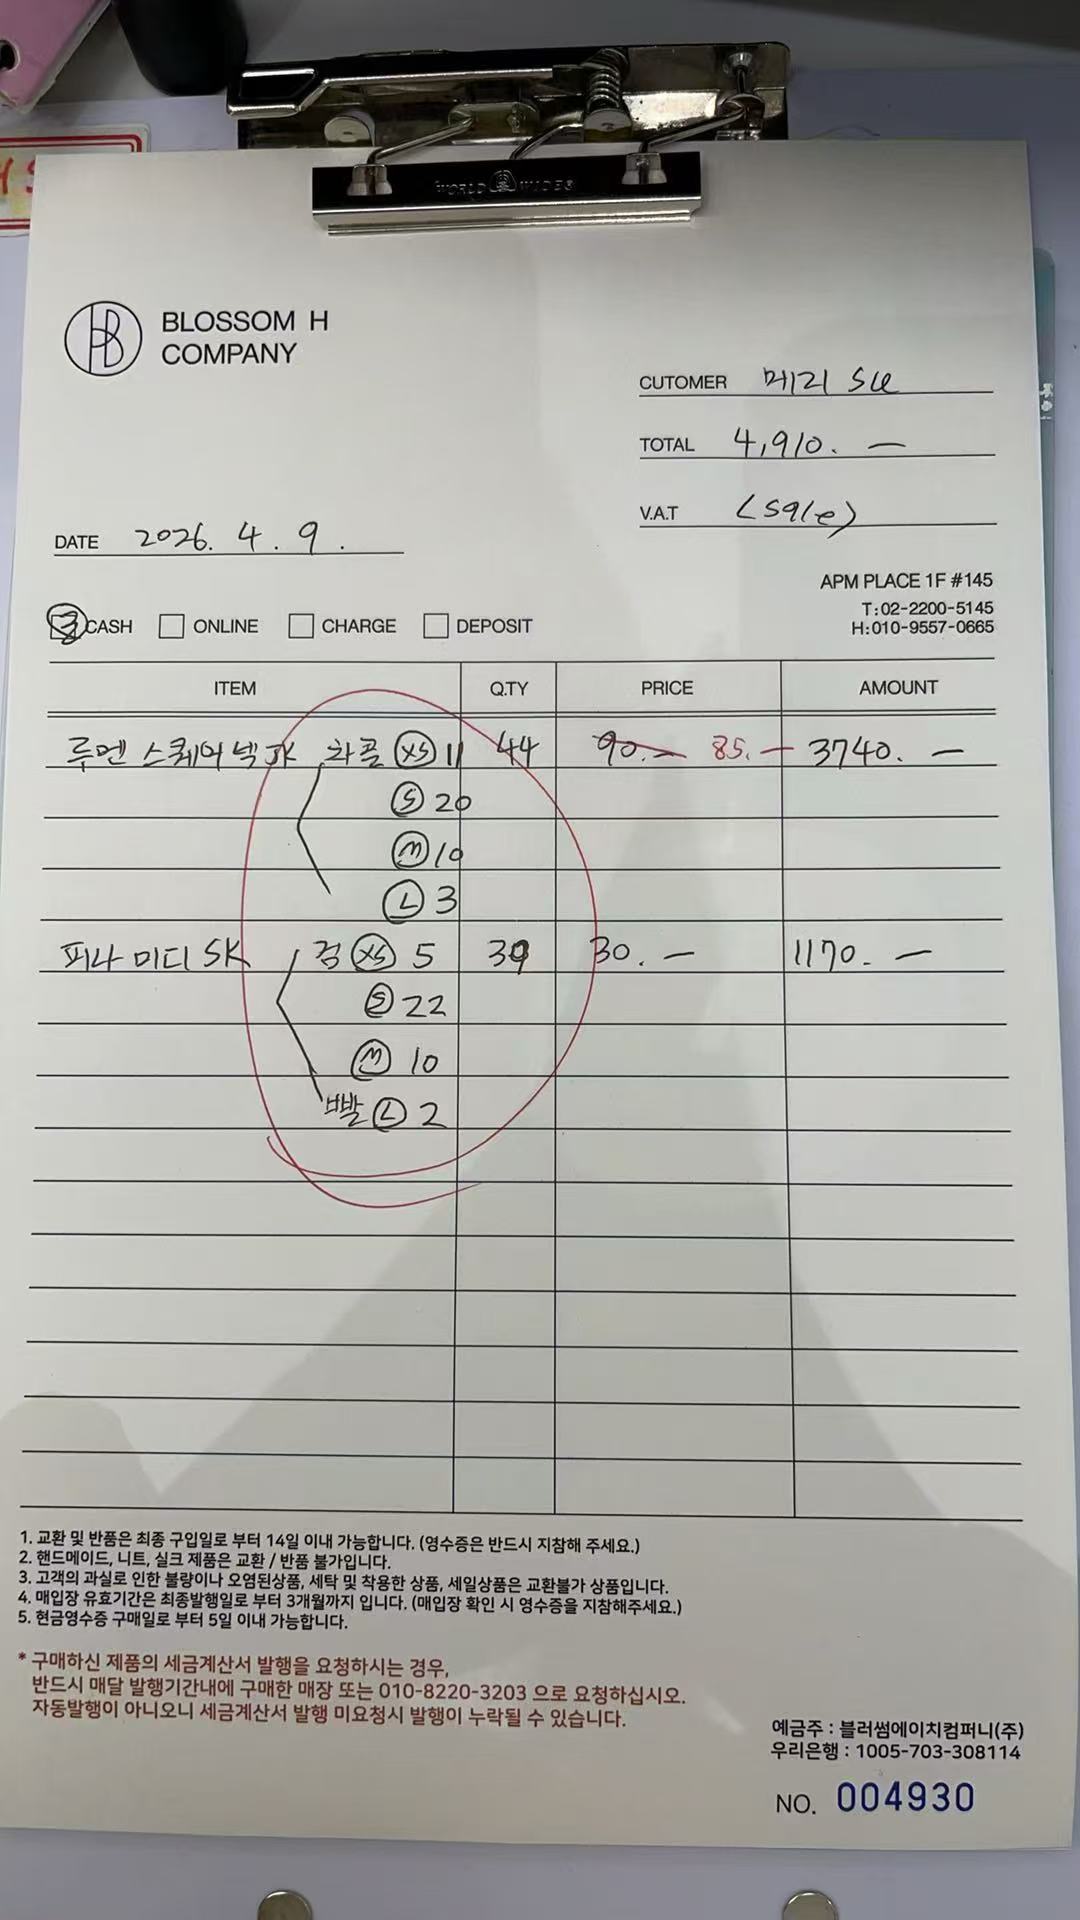 WORLD WIDES
BLOSSOM H
COMPANY
CUTOMER 메리 su
TOTAL 4,910. —
V.A.T (sale)
DATE 2026. 4. 9.
APM PLACE 1F #145
T:02-2200-5145
H:010-9557-0665
CASH ONLINE CHARGE DEPOSIT
ITEM Q.TY PRICE AMOUNT
루멘 스퀘어넥 JK 차콜 XS 11 44 90.— 85.— 3740. —
S 20
M 10
L 3
피나 미디 SK 검 XS 5 39 30. — 1170. —
S 22
M 10
빨 L 2
1. 교환 및 반품은 최종 구입일로 부터 14일 이내 가능합니다. (영수증은 반드시 지참해 주세요.)
2. 핸드메이드, 니트, 실크 제품은 교환 / 반품 불가입니다.
3. 고객의 과실로 인한 불량이나 오염된상품, 세탁 및 착용한 상품, 세일상품은 교환불가 상품입니다.
4. 매입장 유효기간은 최종발행일로 부터 3개월까지 입니다. (매입장 확인 시 영수증을 지참해주세요.)
5. 현금영수증 구매일로 부터 5일 이내 가능합니다.
* 구매하신 제품의 세금계산서 발행을 요청하시는 경우,
반드시 매달 발행기간내에 구매한 매장 또는 010-8220-3203 으로 요청하십시오.
자동발행이 아니오니 세금계산서 발행 미요청시 발행이 누락될 수 있습니다.
예금주 : 블러썸에이치컴퍼니(주)
우리은행 : 1005-703-308114
NO. 004930